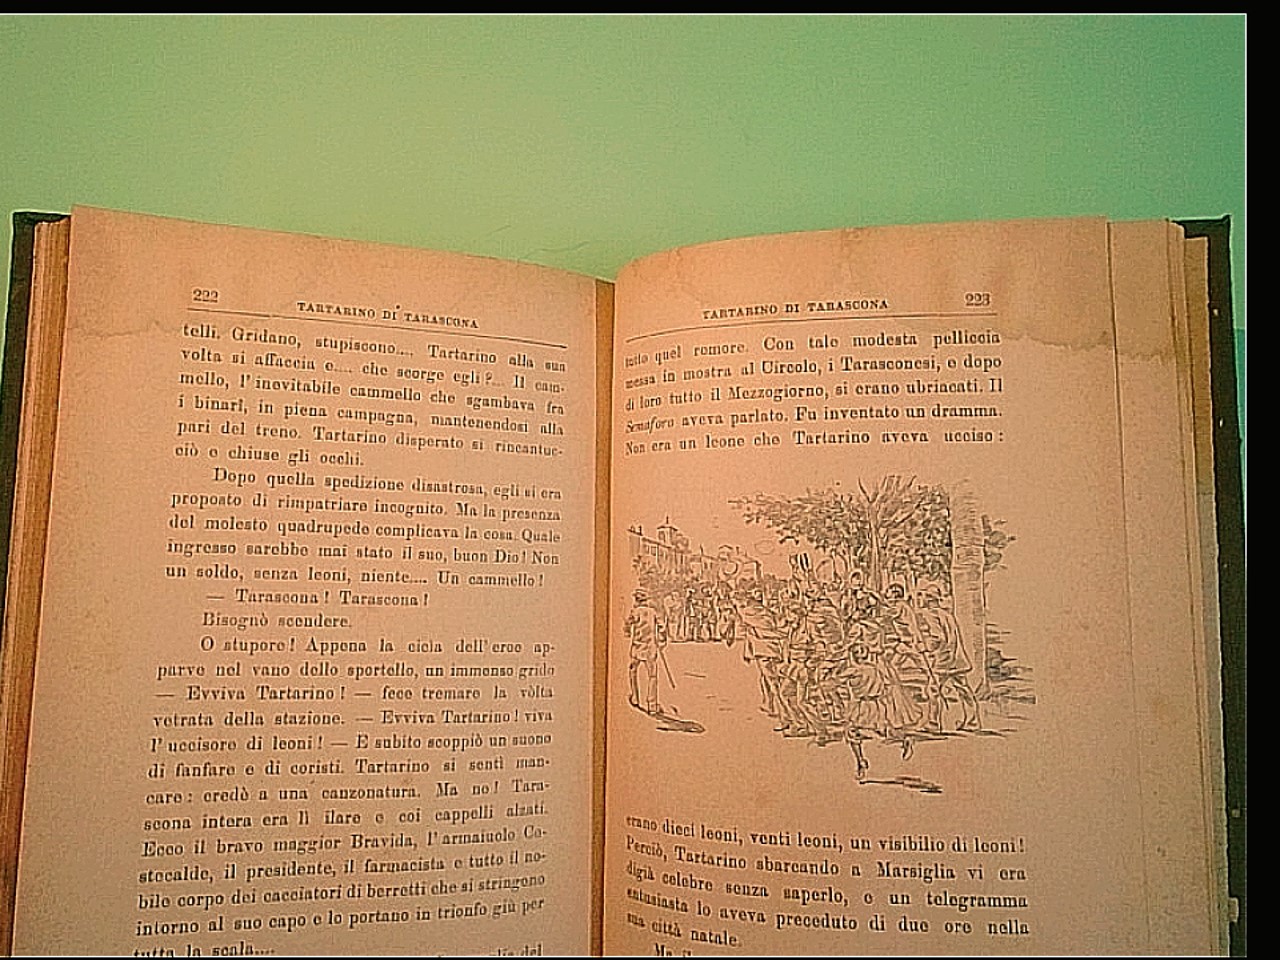 222
TARTARINO DI TARASCONA
telli. Gridano, stupiscono.... Tartarino alla sua
volta si affaccia e.... che scorge egli?... Il cam-
mello, l'inevitabile cammello che sgambava fra
i binarî, in piena campagna, mantenendosi alla
pari del treno. Tartarino disperato si rincantuc-
ciò e chiuse gli occhi.
Dopo quella spedizione disastrosa, egli si era
proposto di rimpatriare incognito. Ma la presenza
del molesto quadrupede complicava la cosa. Quale
ingresso sarebbe mai stato il suo, buon Dio! Non
un soldo, senza leoni, niente.... Un cammello!
— Tarascona! Tarascona!
Bisognò scendere.
O stupore! Appena la ciela dell'eroe ap-
parve nel vano dello sportello, un immenso grido
— Evviva Tartarino! — fece tremare la vòlta
vetrata della stazione. — Evviva Tartarino! viva
l'uccisore di leoni! — E subito scoppiò un suono
di fanfare e di coristi. Tartarino si sentì man-
care: credè a una canzonatura. Ma no! Tara-
scona intera era lì ilare e coi cappelli alzati.
Ecco il bravo maggior Bravida, l'armaiuolo Co-
stecalde, il presidente, il farmacista e tutto il no-
bile corpo dei cacciatori di berretti che si stringono
intorno al suo capo e lo portano in trionfo giù per
tutta la scala....
del
TARTARINO DI TARASCONA
223
tutto quel romore. Con tale modesta pelliccia
messa in mostra al Circolo, i Tarasconesi, e dopo
di loro tutto il Mezzogiorno, si erano ubriacati. Il
Semaforo aveva parlato. Fu inventato un dramma.
Non era un leone che Tartarino aveva ucciso:
erano dieci leoni, venti leoni, un visibilio di leoni!
Perciò, Tartarino sbarcando a Marsiglia vi era
digià celebre senza saperlo, e un telegramma
entusiasta lo aveva preceduto di due ore nella
sua città natale.
Ma